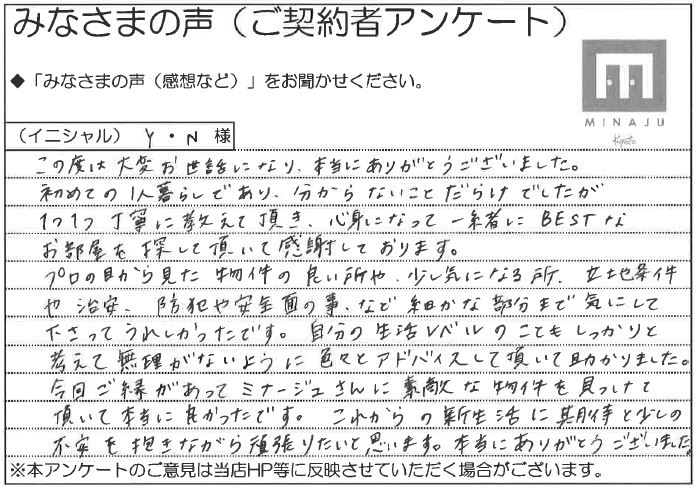 みなさまの声（ご契約者アンケート）
◆「みなさまの声（感想など）」をお聞かせください。
MINAJU
Kyoto
（イニシャル） Y・N 様
この度は大変お世話になり、本当にありがとうございました。
初めての1人暮らしであり、分からないことだらけでしたが
1つ1つ丁寧に教えて頂き、心身になって一緒にBESTな
お部屋を探して頂いて感謝しております。
プロの目から見た物件の良い所や、少し気になる所、立地条件
や治安、防犯や安全面の事、など細かな部分まで気にして
下さってうれしかったです。自分の生活レベルのこともしっかりと
考えて無理がないように色々とアドバイスして頂いて助かりました。
今回ご縁があってミナージュさんに素敵な物件を見つけて
頂いて本当に良かったです。これからの新生活に期待と少しの
不安を抱きながら頑張りたいと思います。本当にありがとうございました。
※本アンケートのご意見は当店HP等に反映させていただく場合がございます。